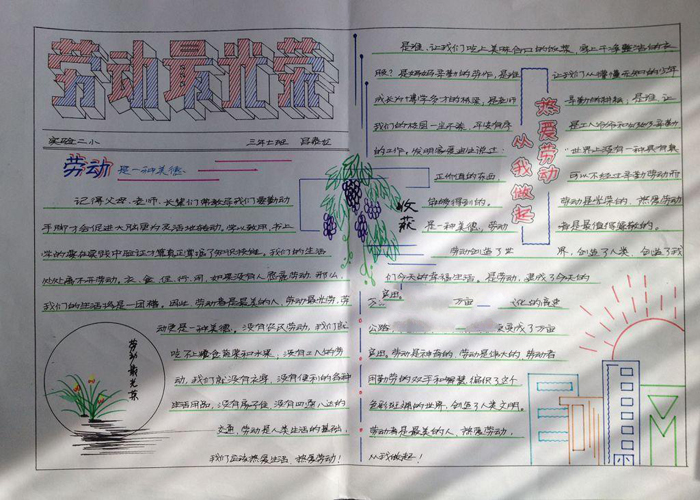 劳动最光荣
实验二小 三年七班
劳动是一种美德
记得父母、老师、长辈们常教导我们要勤动
手脚才会促进大脑更为灵活地转动,学以致用,书上
学的要在实践中验证才算真正掌握了知识技能。我们的生活
处处离不开劳动。衣、食、住、行、用,如果没有人愿意劳动,那么,
我们的生活将是一团糟。因此,劳动者是最美的人,劳动最光荣,劳
动更是一种美德。没有农民劳动,我们就
吃不上粮食蔬菜和水果;没有工人的劳
动,我们就没有衣穿,没有便利的各种
生活用品,没有房子住,没有四通八达的
交通,劳动是人类生活的基础,
我们应该热爱生活,热爱劳动!
劳动最光荣
收获
是谁,让我们吃上美味合口的饭菜,穿上干净整洁的衣
服?是妈妈辛勤的劳作,是谁,让我们从懵懂无知的少年
成长为博学多才的栋梁,是老师辛勤的耕耘,是谁,让
我们的校园一尘不染,井然有序,是工人爷爷和
的工作。发明家爱迪生说过:“世界上没有一种具有真
正价值的东西,可以不经过辛勤劳动而
能够得到的。劳动是光荣的,热爱劳动
是一种美德,劳动者是最值得尊敬的。
劳动创造了世界,创造了人类,创造了我
们今天的幸福生活,是劳动,变成了今天的
公路,变成了万亩
良田。劳动是神奇的,劳动是伟大的,劳动者
用勤劳的双手和智慧,编织了这个
色彩斑斓的世界,创造了人类文明。
劳动者是最美的人,热爱劳动,
从我做起!
热爱劳动
从我做起